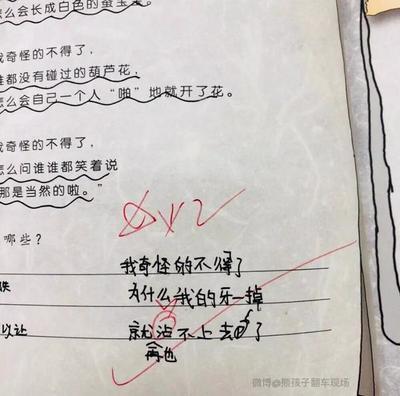 怎么会长成白色的蚕宝宝
我奇怪的不得了，
谁都没有碰过的葫芦花，
怎么会自己一个人“啪”地就开了花。
我奇怪的不得了，
怎么问谁谁都笑着说
那是当然的啦。”
哪些？
我奇怪的不得了
为什么我的牙一掉
以让 就沾不上去了
再也
微博@熊孩子翻车现场